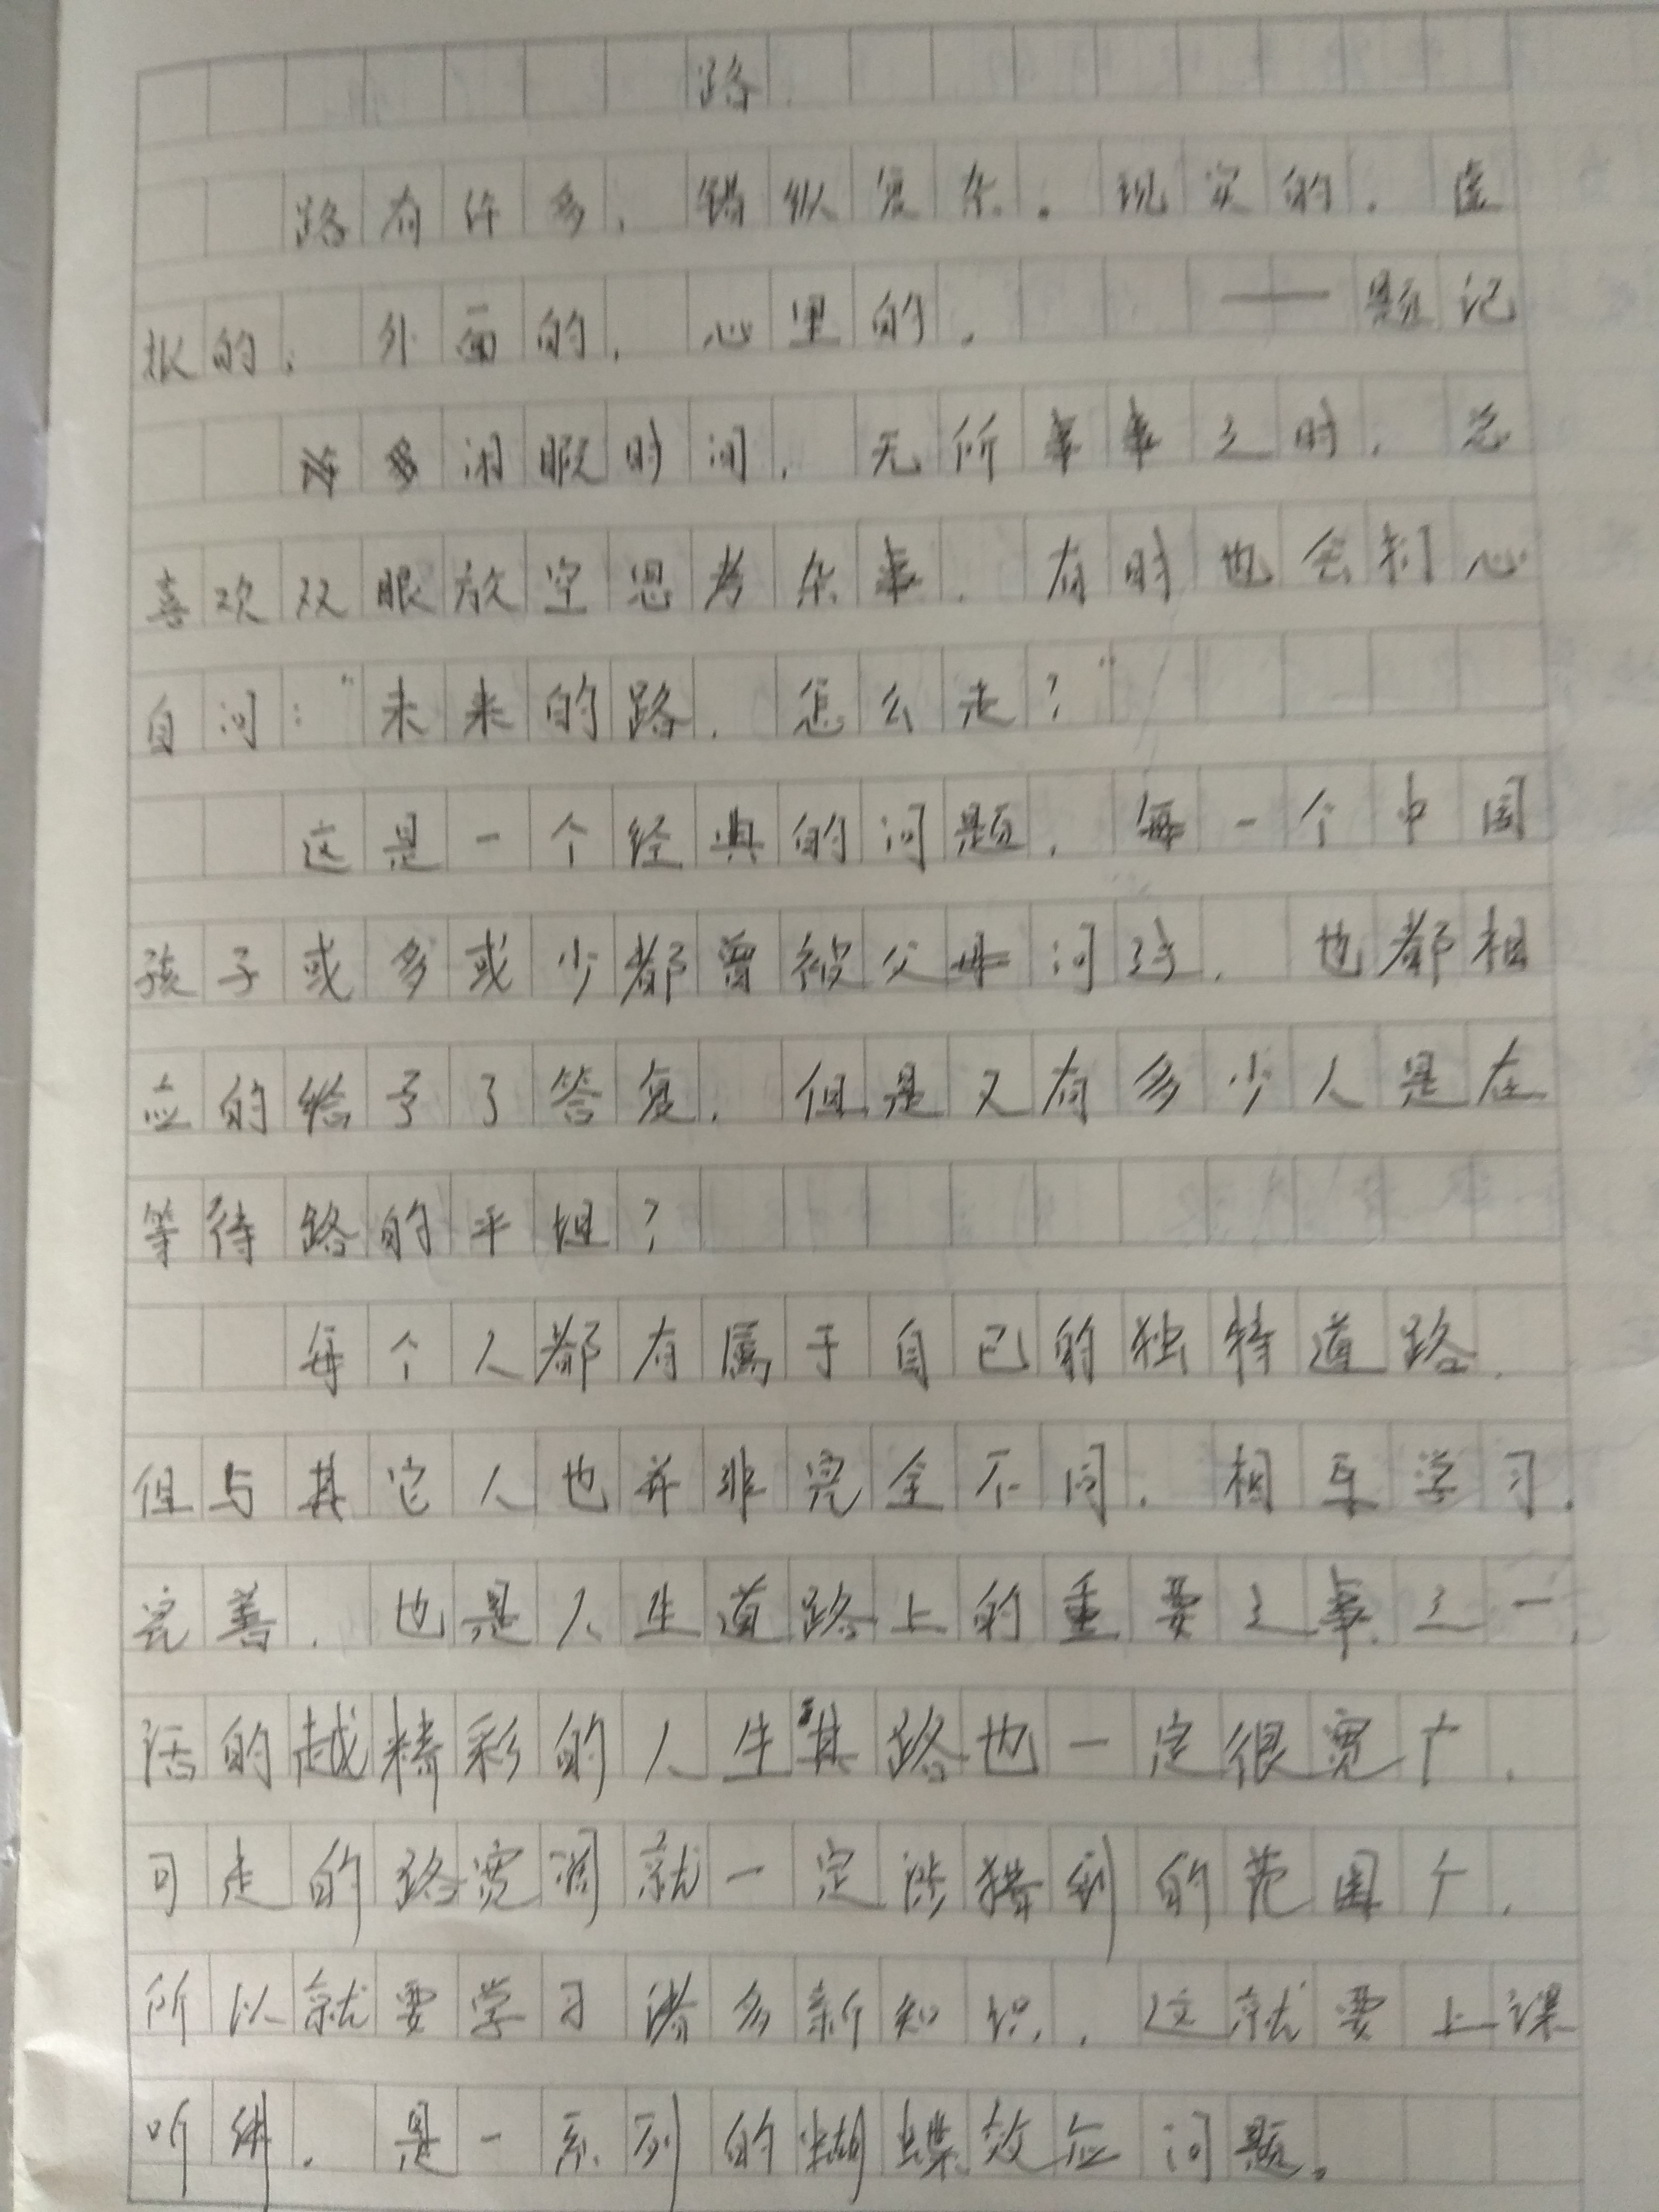 路
路有许多，错纵复杂。现实的，虚
拟的，外面的，心里的。——题记
闲暇时间，无所事事之时，总
喜欢双眼放空思考杂事，有时也会扪心
自问：“未来的路，怎么走？”
这是一个经典的问题，每一个中国
孩子或多或少都曾被父母问过，也都相
应的给予了答复，但是又有多少人是在
等待路的平坦？
每个人都有属于自己的独特道路，
但与其它人也并非完全不同，相互学习，
完善，也是人生道路上的重要之事之一，
活的越精彩的人生其路也一定很宽广，
可走的路宽阔就一定涉猎到的范围广，
所以就要学习诸多新知识，这就要上课
听讲，是一系列的蝴蝶效应问题。